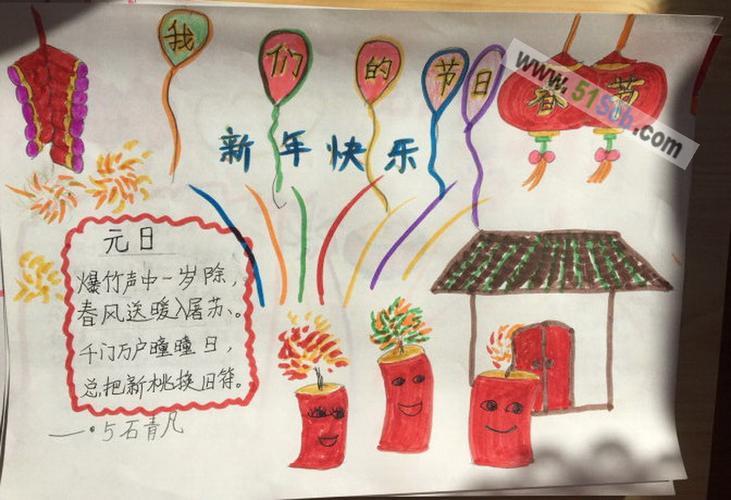 我们的节日
春节
www.51Sub.com
新年快乐
元日
爆竹声中一岁除，
春风送暖入屠苏。
千门万户瞳瞳日，
总把新桃换旧符。
一.5石青凡